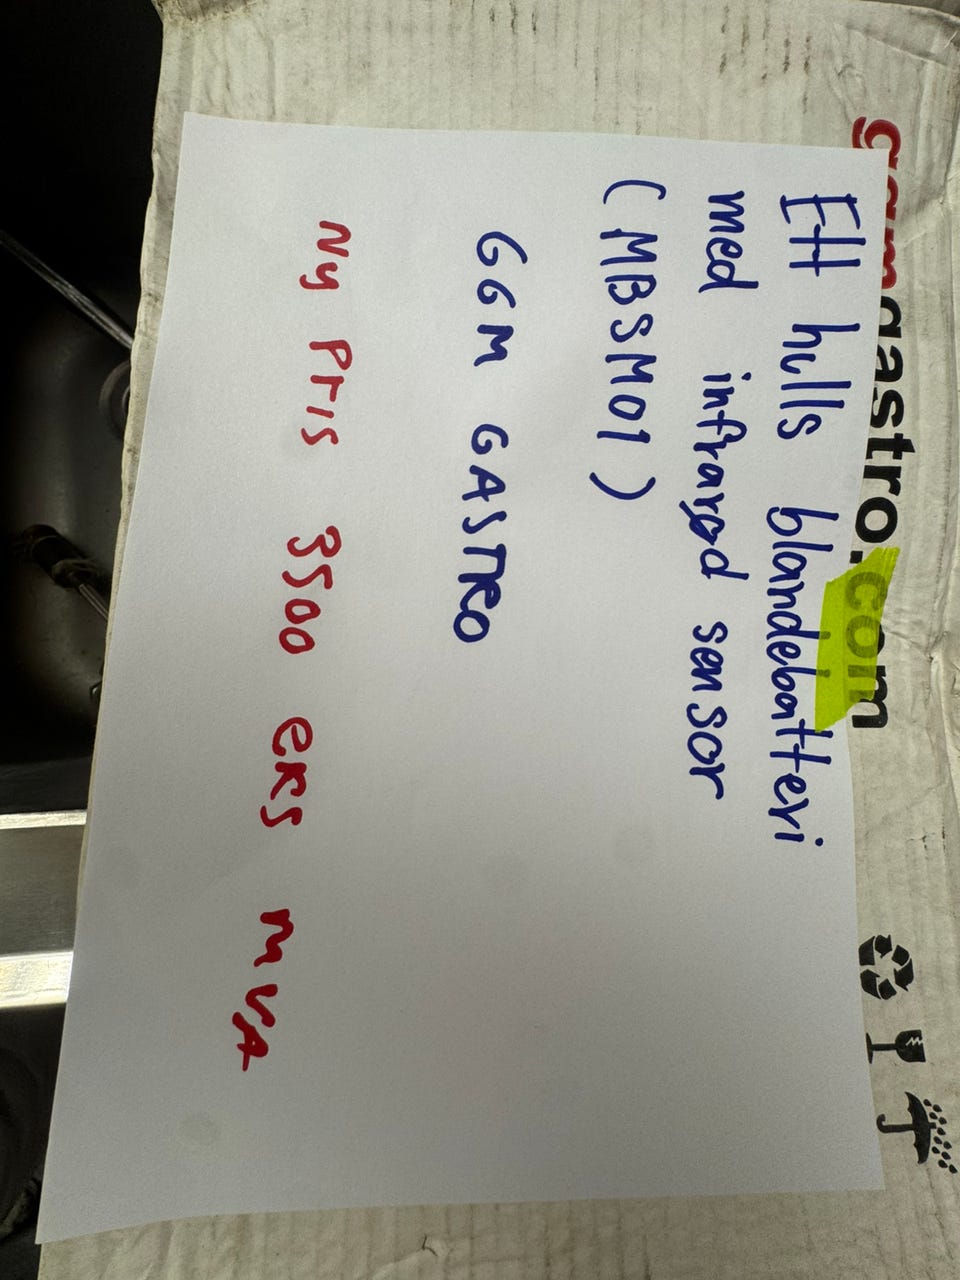 ggmgastro.com
Ett hulls blandebatteri
med infrarød sensor
(MBSM01)
GGM GASTRO
Ny Pris 3500 EKS MVA